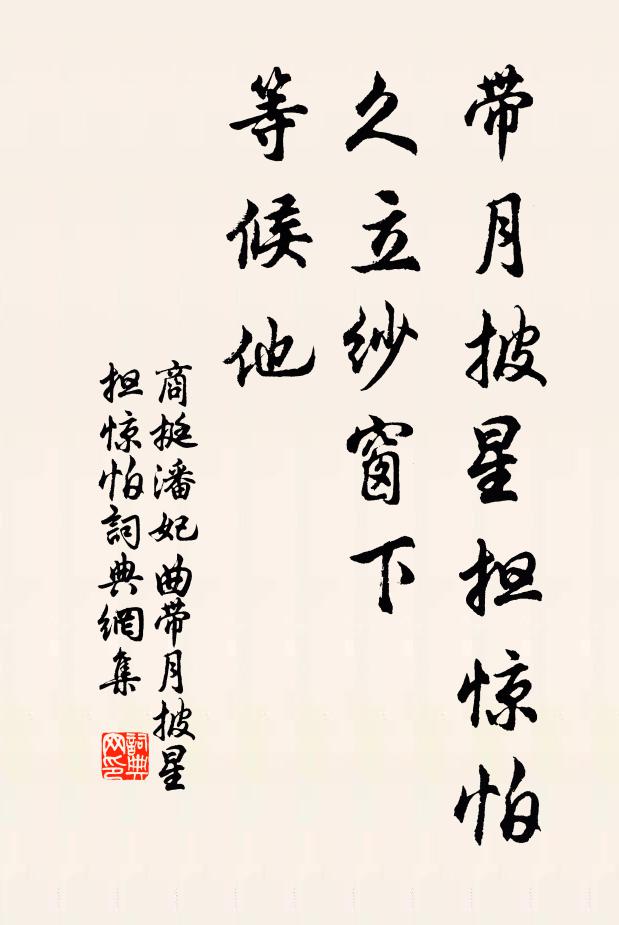 带月披星担惊怕
久立纱窗下
等候他
商挺潘妃曲带月披星
担惊怕詞典網集
詞典
网印